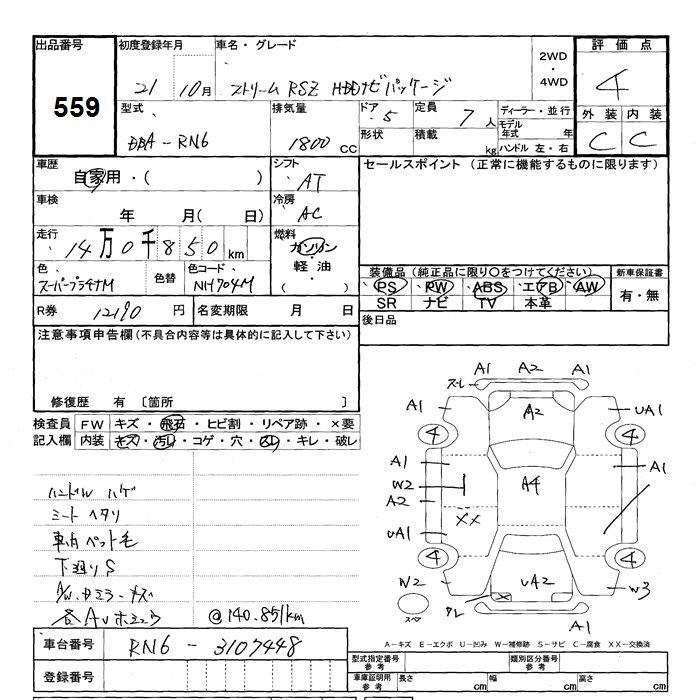 出品番号 初度登録年月 車名・グレード 2WD・4WD 評価点
559
21 10月 ストリーム RSZ HDDナビパッケージ 4
型式 排気量 ドア 5 定員 7人 ディーラー・並行 外装 内装
モデル年式 年
DBA-RN6 1800 CC 形状 積載 kg ハンドル 左・右 C C
車歴 自家用・( ) シフト AT セールスポイント (正常に機能するものに限ります)
車検 年 月( 日) 冷房 AC
走行 14万0千850km 燃料 ガソリン・軽油・( )
色 スーパープラチナM 色替 色コード NH704M
装備品(純正品に限り○をつけてください) 新車保証書
PS PW ABS エアB AW 有・無
SR ナビ TV 本革
R券 12190 円 名変期限 月 日 後日品
注意事項申告欄(不具合内容等は具体的に記入して下さい)
修復歴 有 〔箇所 〕
検査員記入欄 FW キズ・飛石・ヒビ割・リペア跡・×要
内装 キズ・汚れ・コゲ・穴・スレ・キレ・破レ
ハンドルW ハゲ
シート ヘタリ
車内 ペット毛
下廻り S
各AW ホシュウ
@140.851km
A1 A2 A1
スーレ
A1 A2 UA1
4 4
A1 A1
W2 A4
A2 XX
UA1
4 4
W2 UA2 W3
スペア
A1
A-キズ E-エクボ U-凹み W-補修跡 S-サビ C-腐食 XX-交換済
車台番号 RN6-3107448
登録番号
型式指定番号 参考 類別区分番号 参考
車庫証明用 参考 長さ cm 幅 cm 高さ cm